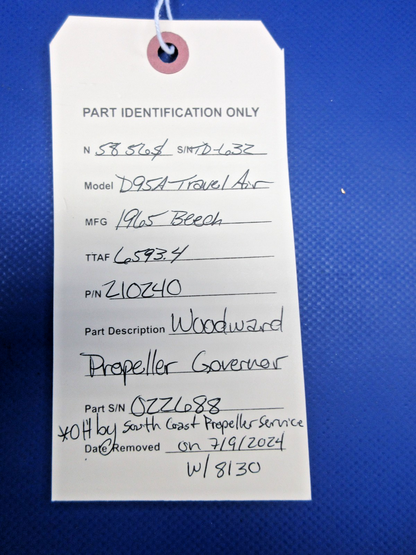 PART IDENTIFICATION ONLY
N 5856$ S/N TD-632
Model D95A Travel Air
MFG 1965 Beech
TTAF 6593.4
P/N 210240
Part Description Woodward
Propeller Governor
Part S/N 022688
*OH by South Coast Propeller Service
Date Removed on 7/9/2024
W/ 8130